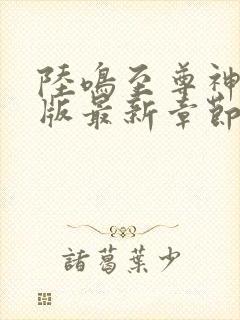 陸鳴至尊神
版最新章節
諸葛葉少